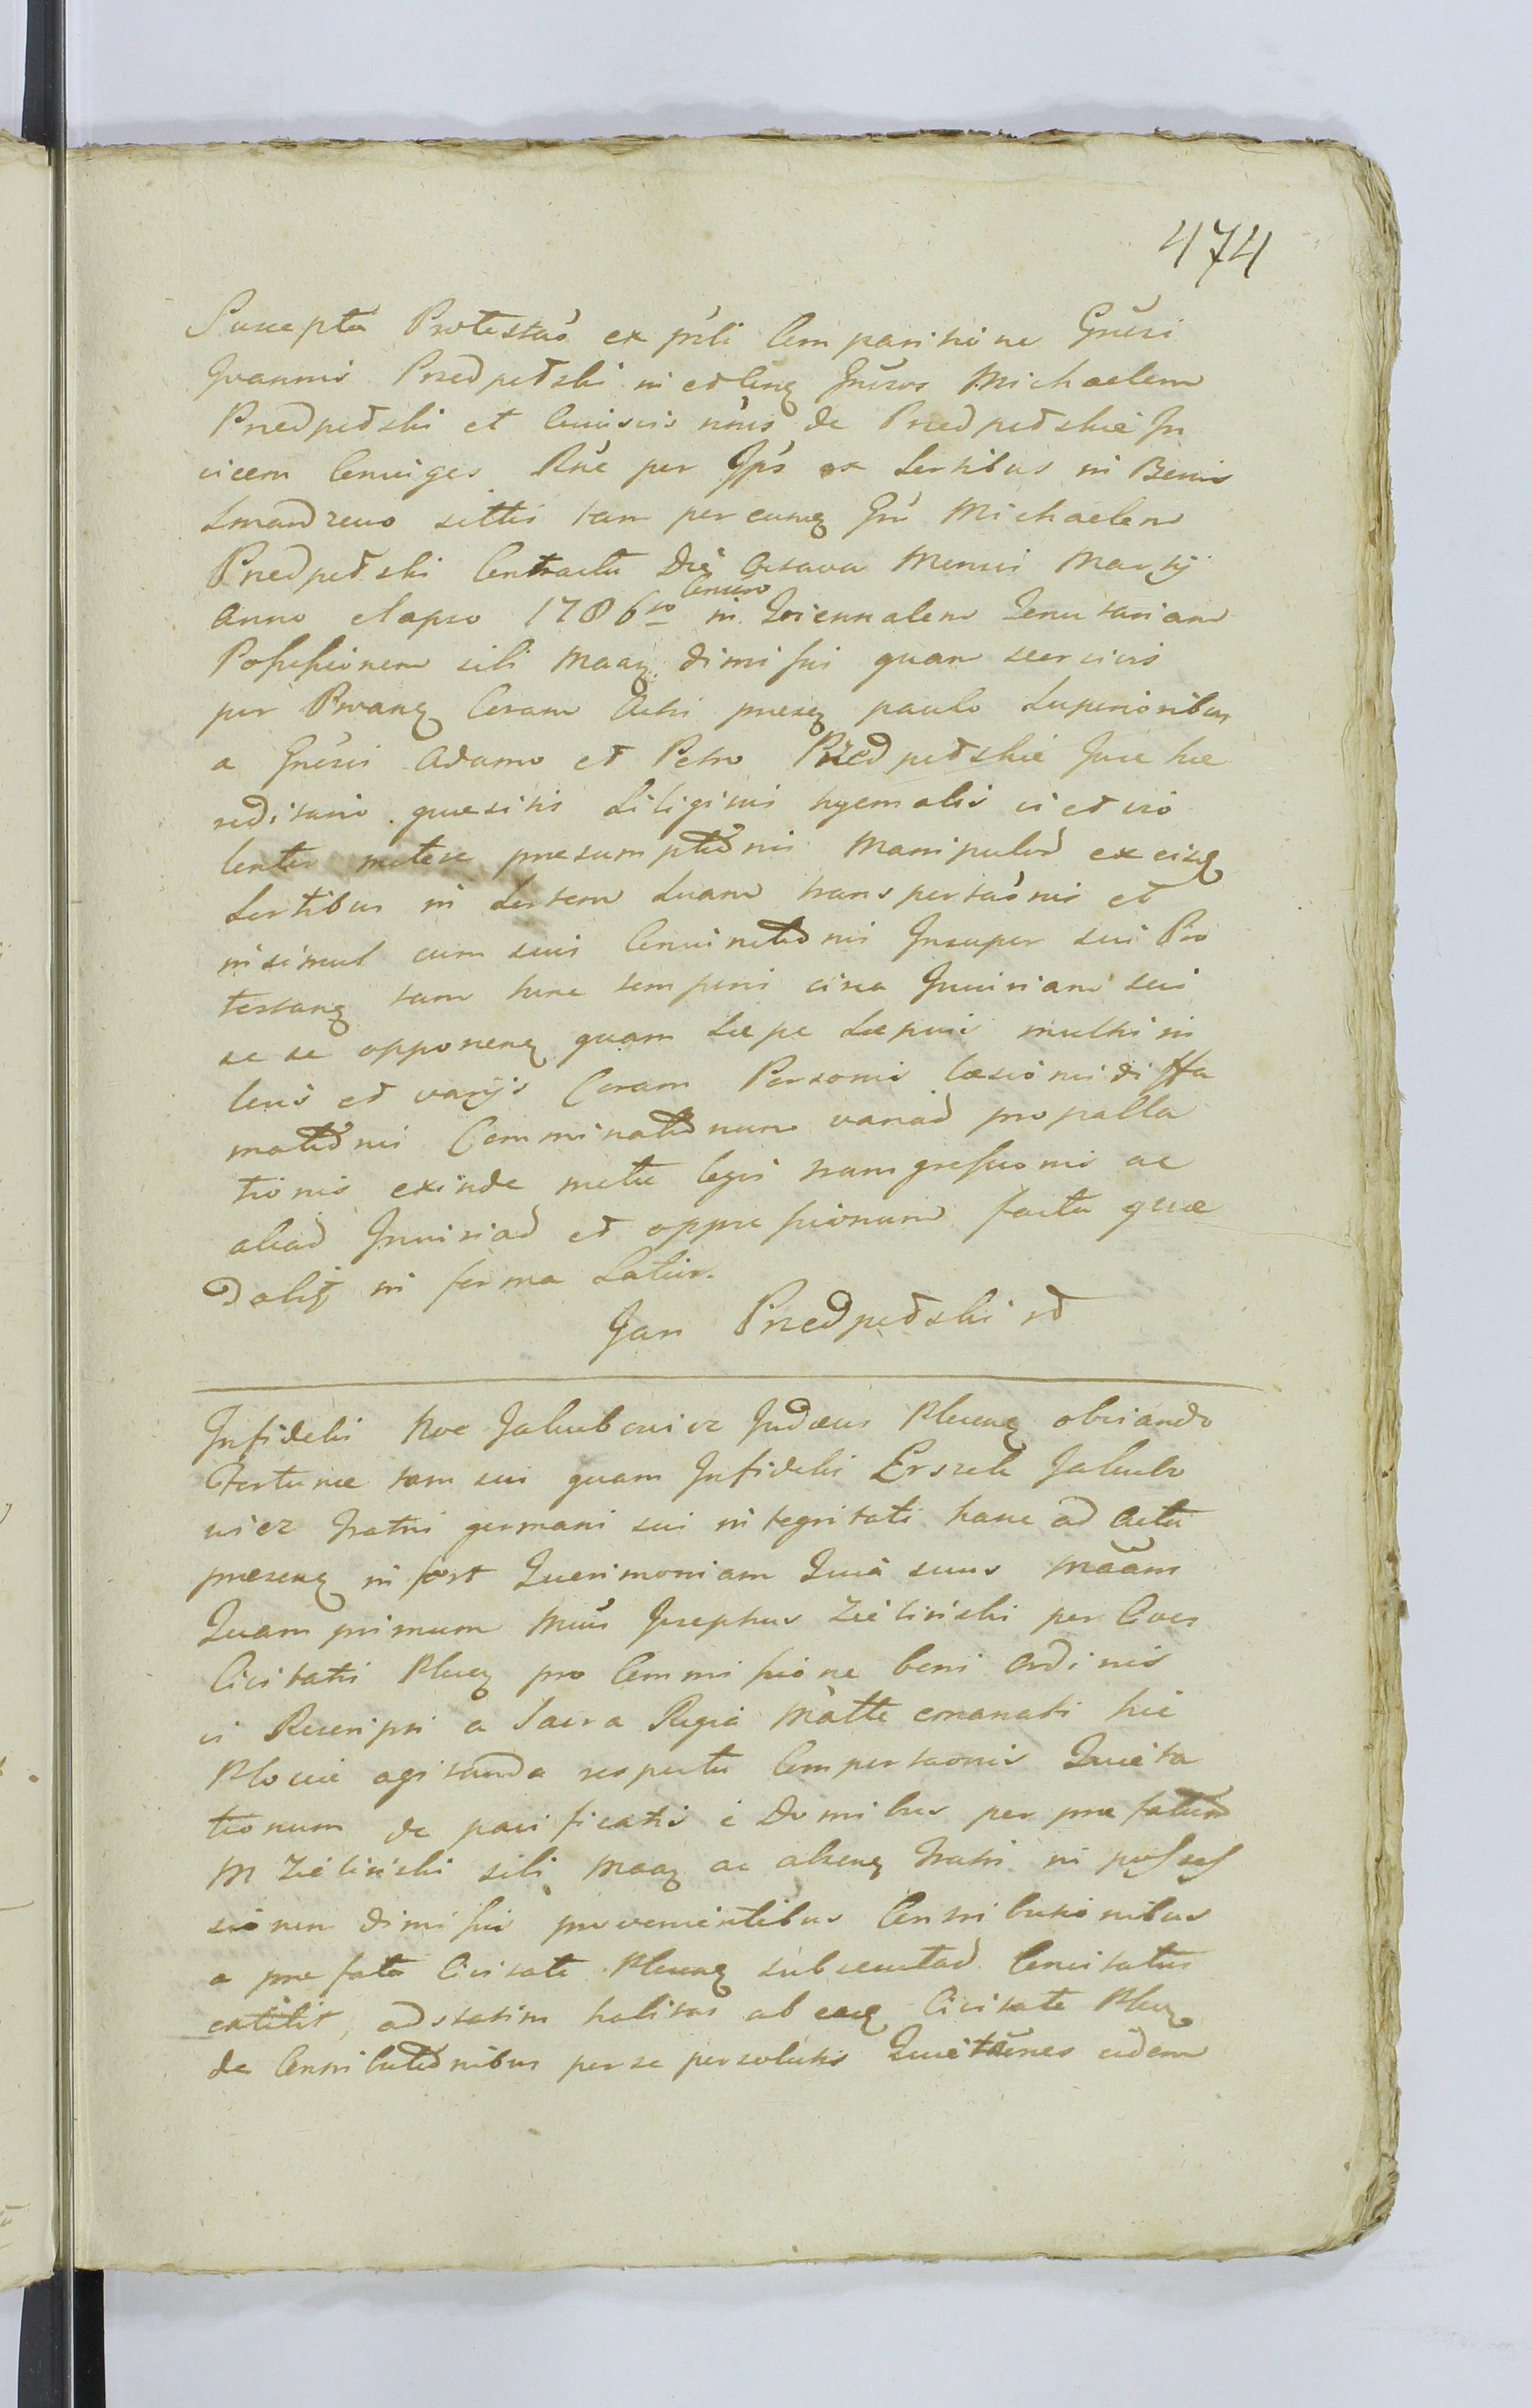 474
Suscepta Protestaõ ex prsli Comparitione Grusi
Joannis Przedpełski in et ctrag Grusos Michaelem
Przedpełski et Cunis nõis de Przedpełskie In
vicem Coniuges Rõe per Ips ex Sortibus in Bonis
Smardzewo sittis tam per eumq Grũ Michaelem
Przedpełski Contractu Die Octava Mensis Martij
Anno elapso 1786to in Triennalem Tenutariam
Censero
Possessionem sibi Maaq dimissis quam
per Prvang Coram Actis presq paulo Superioribus
a Grusis Adamo et Petro Przedpełskie Jure hæ
reditario quæsitis Siliginis hyemalis vi et vio
lenter metere præsumptionis Manipulor ex eisq
Sortibus in Sortem Suam transportaonis et
insimul cum suis Convinctionis Insuper sui Pro
testang tam tunc temporis circa Iniuriam sui
se se opponeng quam Sæpe Sæpius multis in
locis et varijs Coram Personis læsionis diffa
mationis Comminationum variar propalla
tionis exinde metu legis transgressionis ac
aliar Iniuriar et oppressionum facta quæ
dolij in forma Latius.
Jan Przedpełski rd
Infidelis Noe Jakubowicz Judæus Plocng obviando
Fortunæ tam sui quam Infidelis Erszek Jakubo
wicz fratris germani sui integritati hanc ad Acta
præseng infert Querimoniam Quia suus Mãam
Quam primum Mũs Josephus Zieliński per Cives
Civitatis Plocg pro Commissione boni Ordinis
vi Rescripti a Sacra Regia Matte emanati hic
Plociæ agitanda respectu Comportaonis Quieta
tionum de pacificatis e Domibus per præfatum
M Zieliński sibi Maaq ac abseng fratri in posses
sionem dimissis provenientibus Contributionibus
a præfata Civitate Plocng subsecutar Concitatus
extitit, adstatim habitas ab eaq Civitate Plocg
de Contributionibus per se persolutis Quietõnes eidem